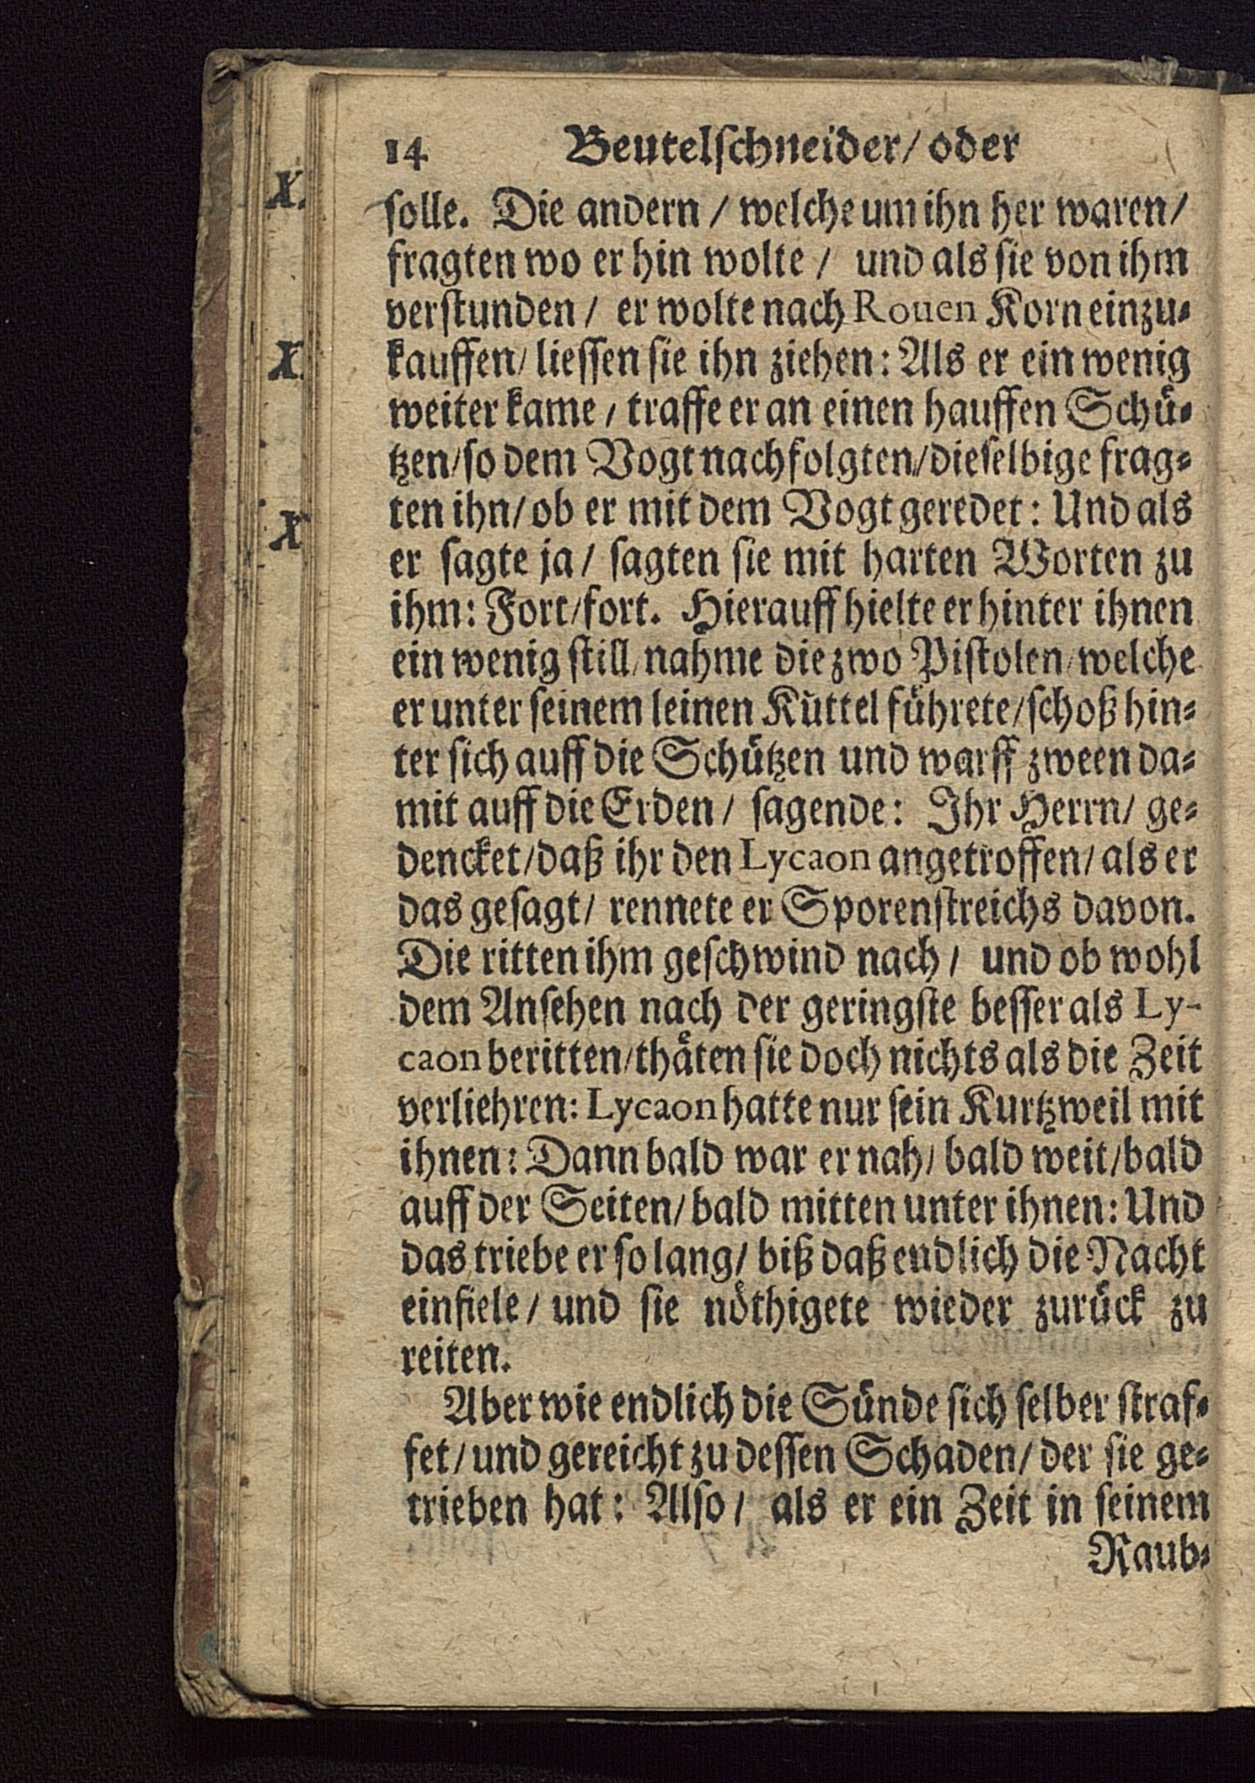 14 Beutelschneider/ oder
solle. Die andern / welche um ihn her waren/
fragten wo er hin wolte / und als sie von ihm
verstunden / er wolte nach Rouen Korn einzu-
kauffen/ liessen sie ihn ziehen: Als er ein wenig
weiter kame / traffe er an einen hauffen Schü-
tzen/so dem Vogt nachfolgten/dieselbige frag-
ten ihn/ ob er mit dem Vogt geredet: Und als
er sagte ja / sagten sie mit harten Worten zu
ihm: Fort/fort. Hierauff hielte er hinter ihnen
ein wenig still/ nahme die zwo Pistolen/welche
er unter seinem leinen Küttel führete/schoß hin-
ter sich auff die Schützen und warff zween da-
mit auff die Erden / sagende: Ihr Herrn/ ge-
dencket/daß ihr den Lycaon angetroffen/ als er
das gesagt/ rennete er Sporenstreichs davon.
Die ritten ihm geschwind nach / und ob wohl
dem Ansehen nach der geringste besser als Ly-
caon beritten/thäten sie doch nichts als die Zeit
verliehren: Lycaon hatte nur sein Kurtzweil mit
ihnen: Dann bald war er nah/ bald weit/bald
auff der Seiten/ bald mitten unter ihnen: Und
das triebe er so lang/ biß daß endlich die Nacht
einfiele / und sie nöthigete wieder zurück zu
reiten.
Aber wie endlich die Sünde sich selber straf-
fet / und gereicht zu dessen Schaden/ der sie ge-
trieben hat: Also / als er ein Zeit in seinem
Raub-
X.
X.
X